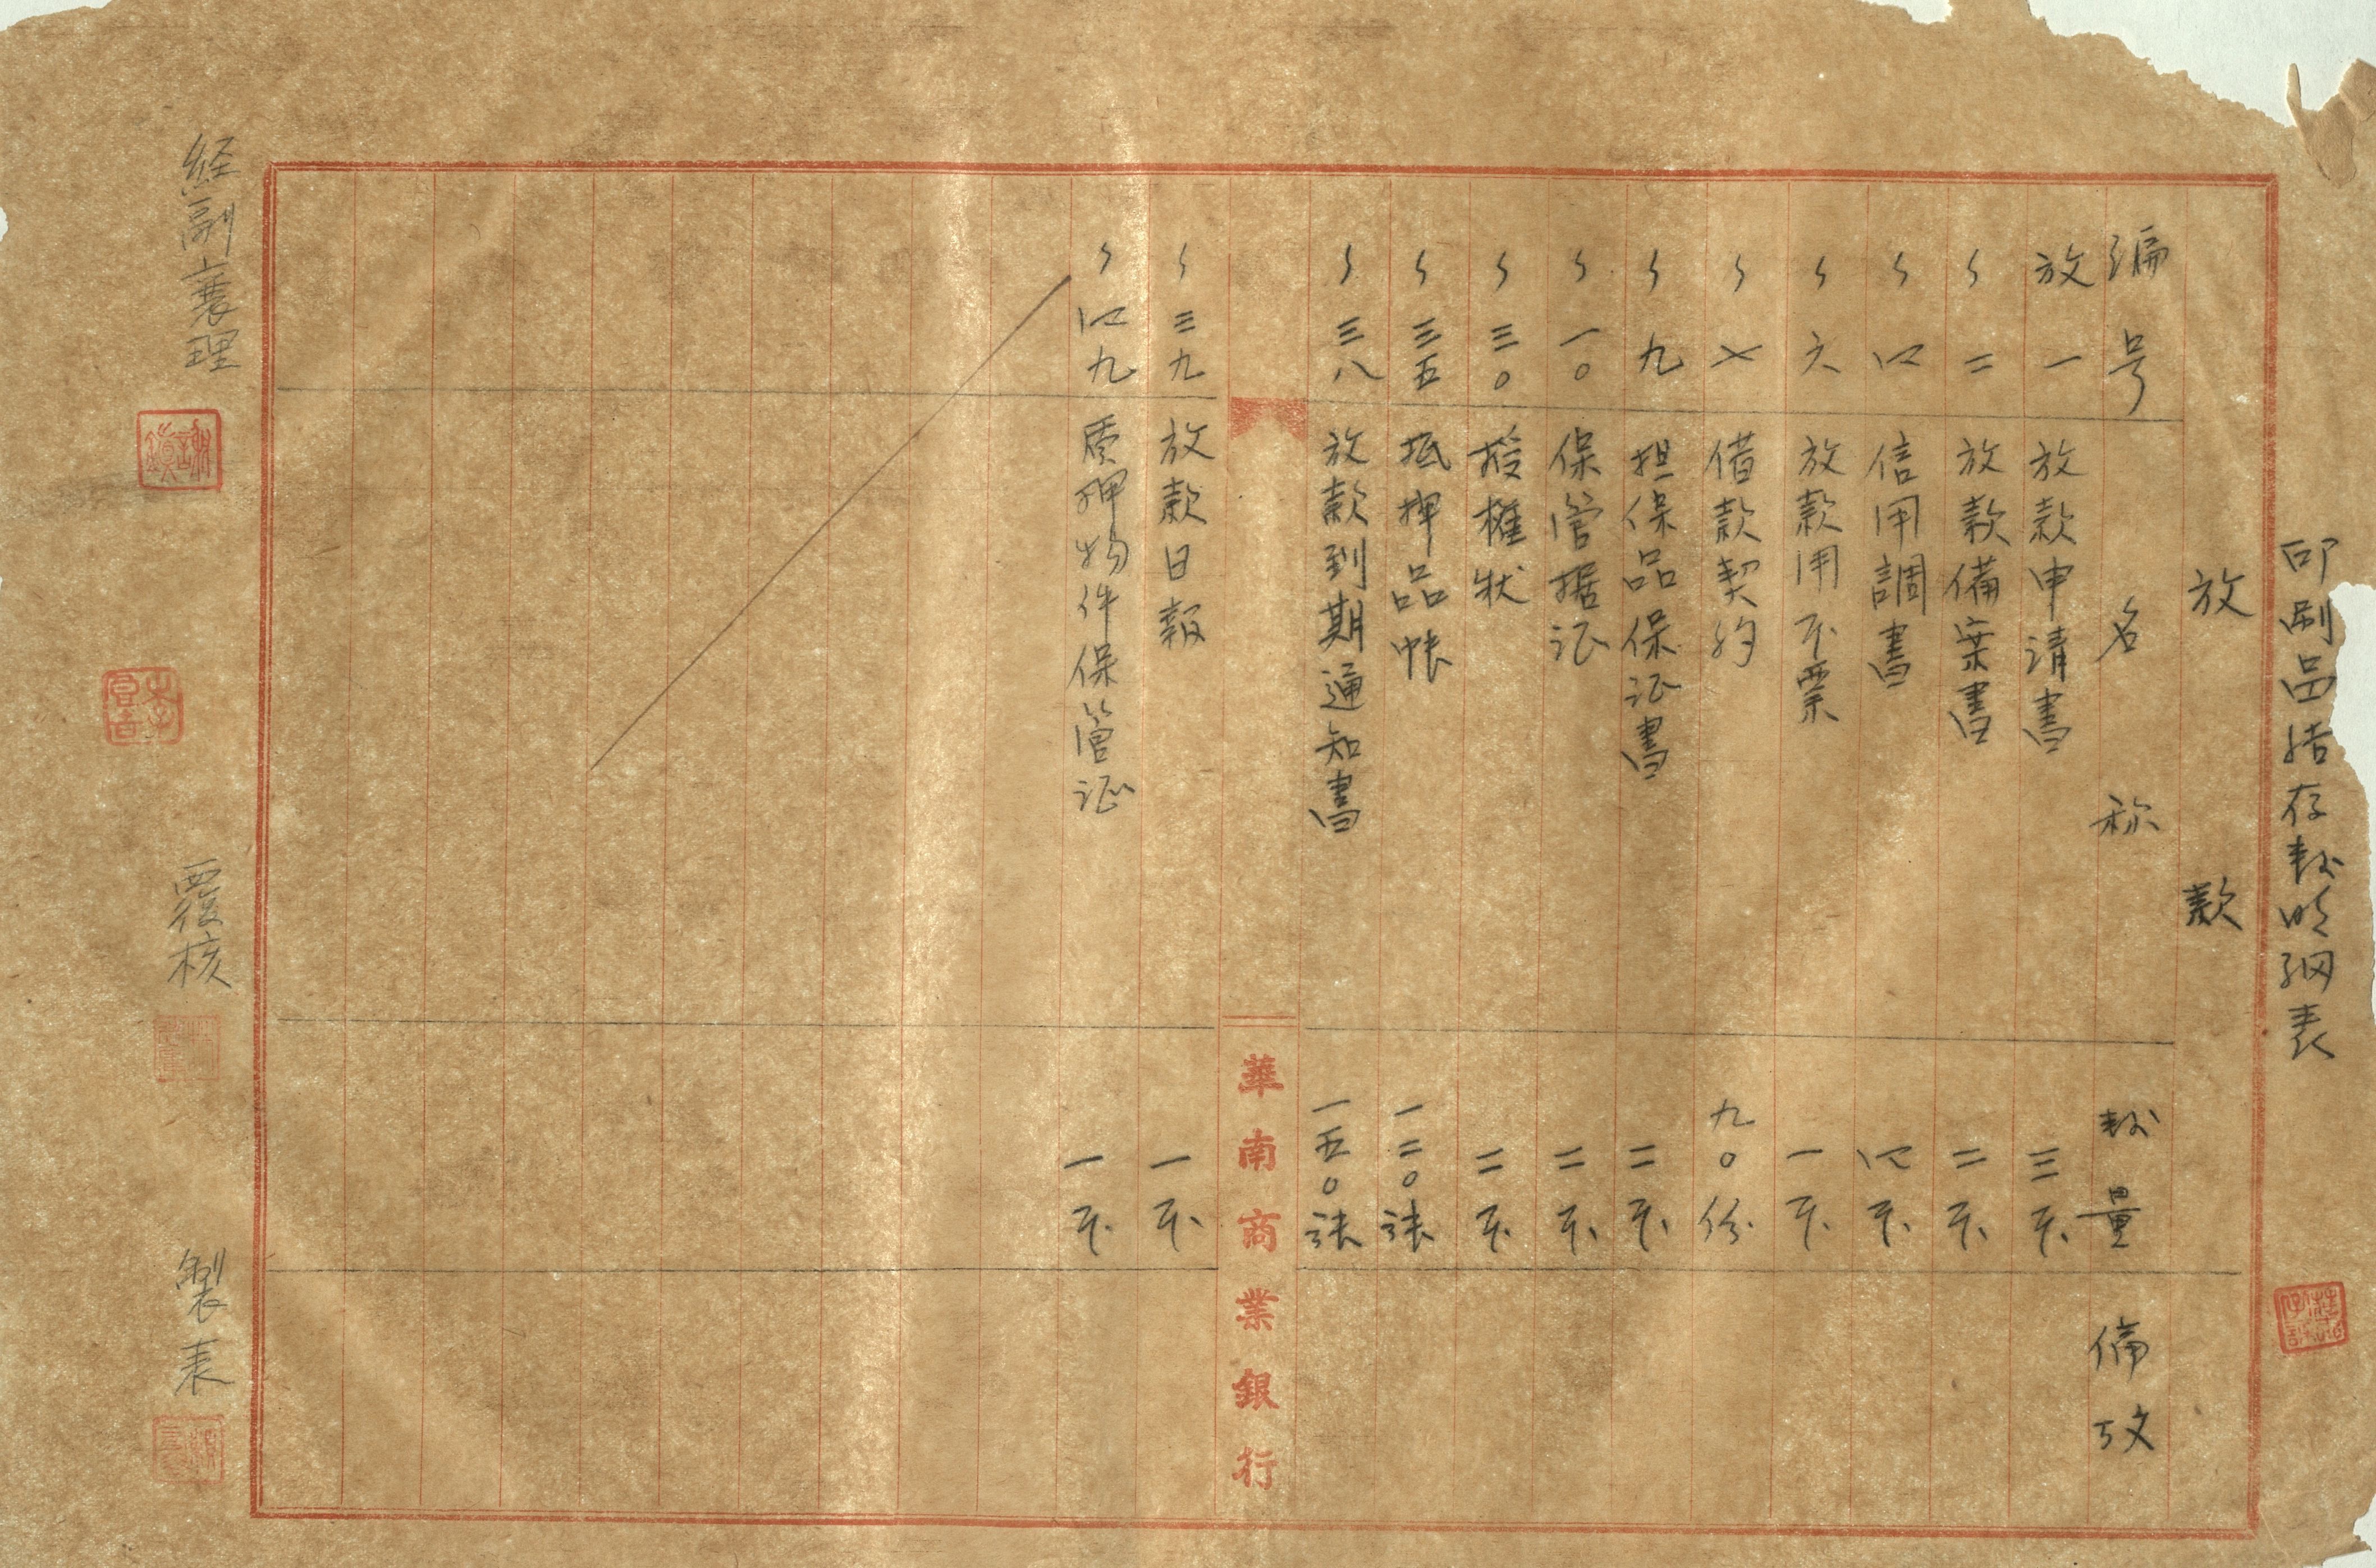 印刷品結存数明細表
放款
編号 名称 数量 備攷
放一 放款申請書 三本
〃二 放款備案書 二本
〃四 信用調書 四本
〃六 放款用本票 一本
〃七 借款契約 九〇份
〃九 担保品保証書 二本
〃一〇 保管据証 二本
〃三〇 授権状 二本
〃三五 抵押品帳 一二〇張
〃三八 放款到期通知書 一五〇張
華南商業銀行
〃三九 放款日報 一本
〃四九 质押物件保管証 一本
経副襄理
覆核
製表